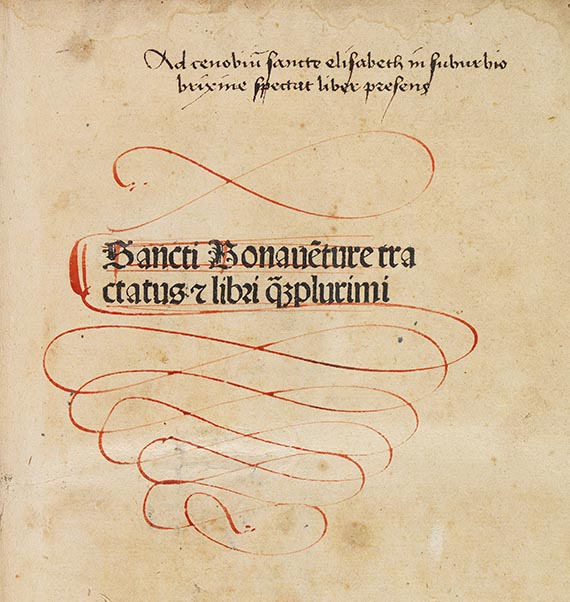 Ad cenobiū sancte elisabeth in suburbio
brixine spectat liber presens
Sancti Bonauēture tra
ctatus ⁊ libri q̄ꝫplurimi